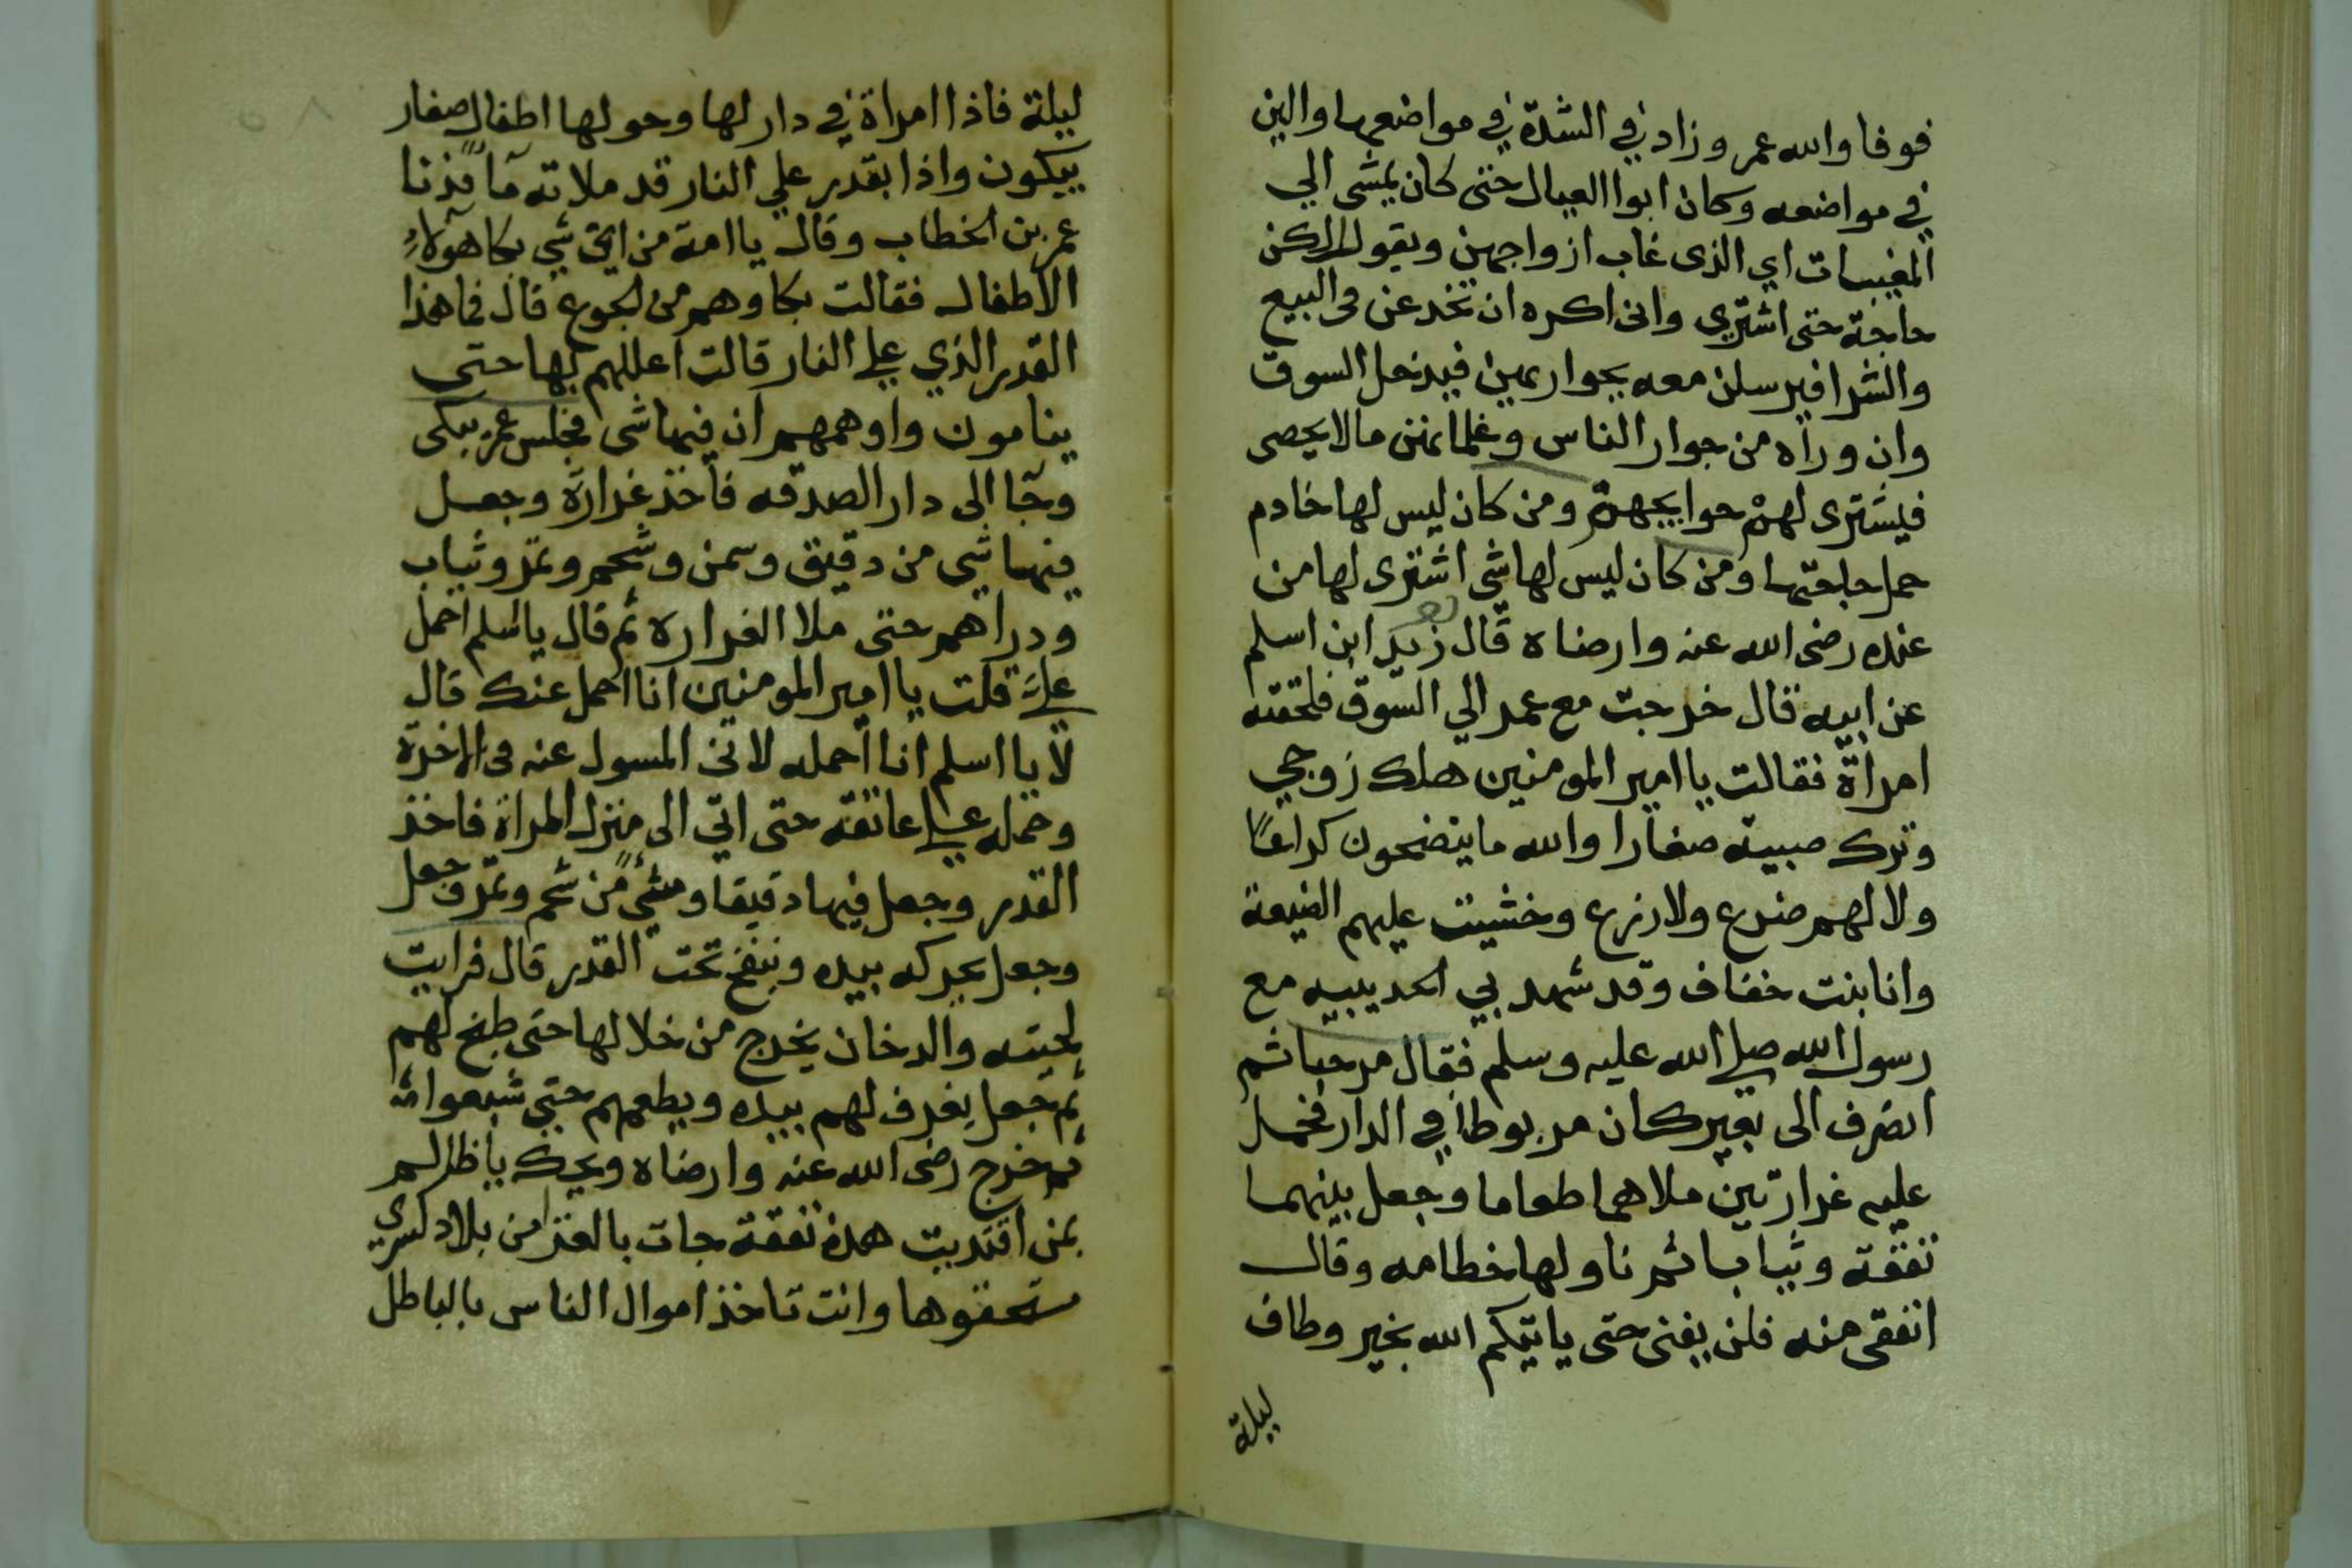 فوفا والله عمر وزاد في الشدة في مواضعها والين
في مواضعه وكان ابوا العيال حتى كان يمشى الي
المغيبات اي الذى غاب ازواجهن ويقول الكن
حاجة حتى اشتري وانى اكره ان تخدعن فى البيع
والشرا فيرسلن معه بجواريهن فيدخل السوق
وان وراه من جوار الناس وغلمانهن مالا يحصى
فيشترى لهن حوايجهن ومن كان ليس لها خادم
حمل حاجتها ومن كان ليس لها شي اشترى لها من
عنده رضى الله عنه وارضاه قال زيد ابن اسلم
عن ابيه قال خرجت مع عمر الي السوق فلحقته
امراة فقالت يا امير المومنين هلك زوجي
وترك صبية صغارا والله ما ينضحون كراعًا
ولا لهم ضرع ولا زرع وخشيت عليهم الضيعة
وانا بنت خفاف وقد شهد بي الحديبيه مع
رسول الله صلى الله عليه وسلم فقال مرحبا ثم
انصرف الى بعير كان مربوطا في الدار فحمل
عليه غرارتين ملاهما طعاما وجعل بينهما
نفقة وثيابا ثم ناولها خطامه وقال
انفقى منه فلن يفنى حتى ياتيكم الله بخير وطاف
ليلة
ليلة فاذا امراة في دار لها وحولها اطفال صغار
يبكون واذا بقدر علي النار قد ملاته مآ فدنا
عمر بن الخطاب وقال يا امة من اي شي بكا هولاء
الاطفال فقالت بكاوهم من الجوع قال فما هذا
القدر الذي على النار قالت اعللهم بها حتى
ينامون واوهمهم ان فيها شى فجلس عمر يبكى
وجآ الى دار الصدقه فاخذ غرارة وجعل
فيها شي من دقيق وسمن وشحم وتمر وثياب
ودراهم حتى ملا الغراره ثم قال يا اسلم احمل
علىّ قلت يا امير المومنين انا احمل عنك قال
لا يا اسلم انا احمله لانى المسول عنه فى الاخرة
وحمله على عاتقه حتى اتي الى منزل المراة فاخذ
القدر وجعل فيها دقيقا وشيءً من شحم وتمر وجعل
وجعل يحركه بيده وينفخ تحت القدر قال فرايت
لحيته والدخان يخرج من خلالها حتى طبخ لهم
ثم جعل يغرف لهم بيده ويطعمهم حتى شبعوا ثم
ثم خرج رضى الله عنه وارضاه ويحك يا ظالم
بمن اقتديت هذه نفقة جات بالغزا من بلاد كسري
مستحقوها وانت تاخذ اموال الناس بالباطل